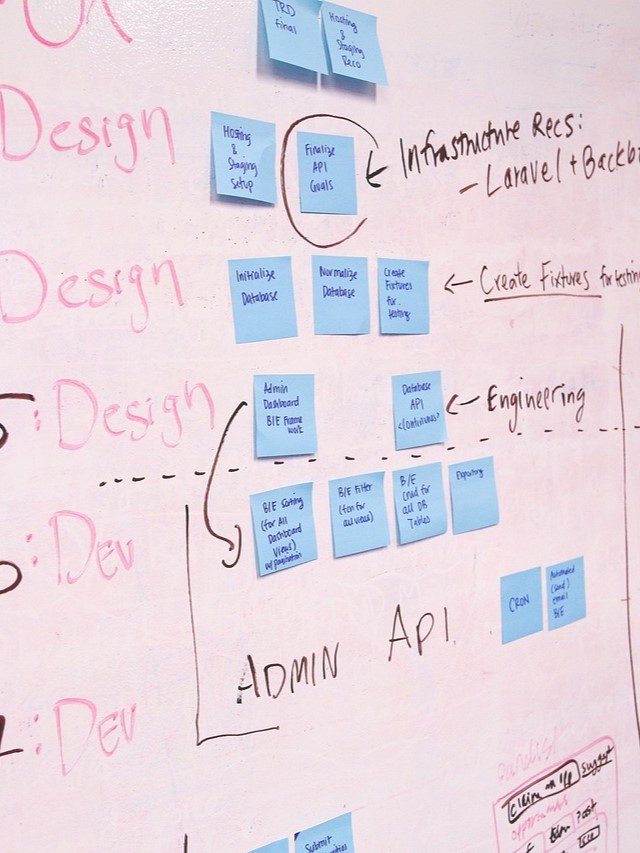 TRD
final
Hosting
&
Staging
Reco
Design
Hosting
&
Staging
Setup
Finalize
API
Goals
← Infrastructure Recs:
- Laravel + Backb
Design
Initialize
Database
Normalize
Database
Create
Fixtures
for
testing
← Create Fixtures for testing
: Design
Admin
Dashboard
B/E Frame
work
Database
API
<continuous>
← Engineering
: Dev
B/E Sorting
(for All
Dashboard
Views)
w/pagination
B/E Filter
(ton for
all views)
B/E
crud for
all DB
Tables
Exporting
CRON
Automated
(Send)
email
B/E
ADMIN API
: Dev
Suggest
Post
Submit